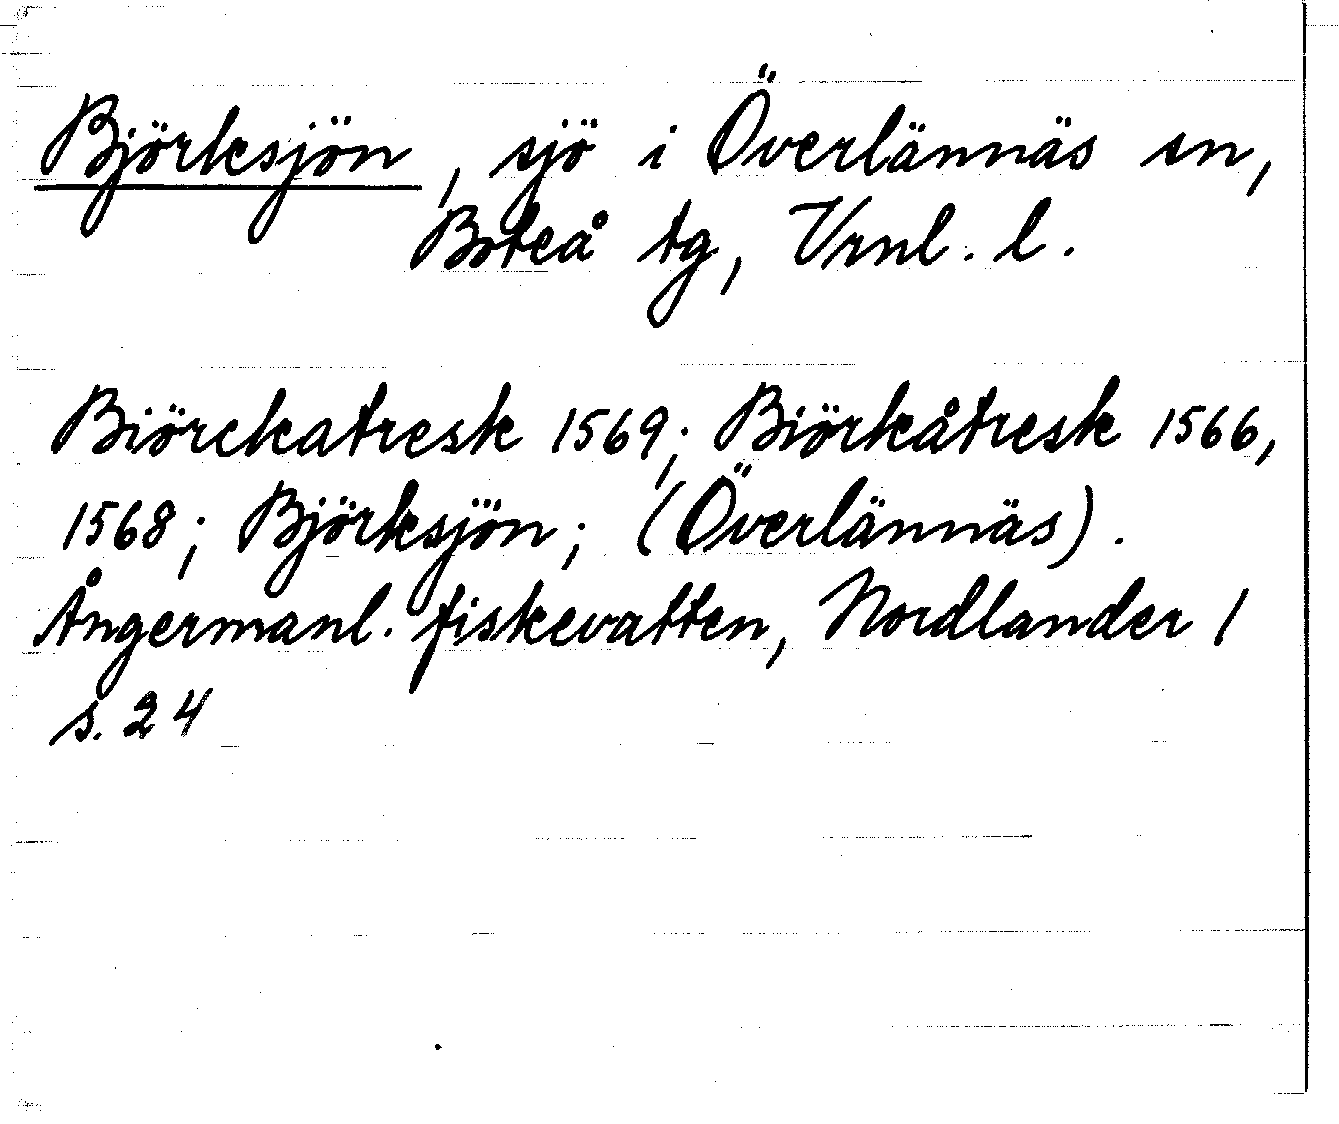 Björksjön, sjö i Överlännäs sn,
Boteå tg, Vrnl. l.
Biörckatresk 1569; Biörkåtresk 1566,
1568; Björksjön; (Överlännäs).
Ångermanl. fiskevatten, Nordlander 1
s. 24